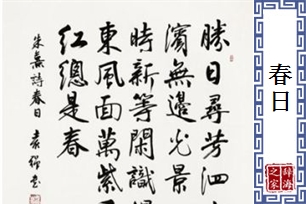 春日
辭海
之家
勝日尋芳泗
濱無邊光景
時新等閑識
東風面萬紫千
紅總是春
朱熹詩春日